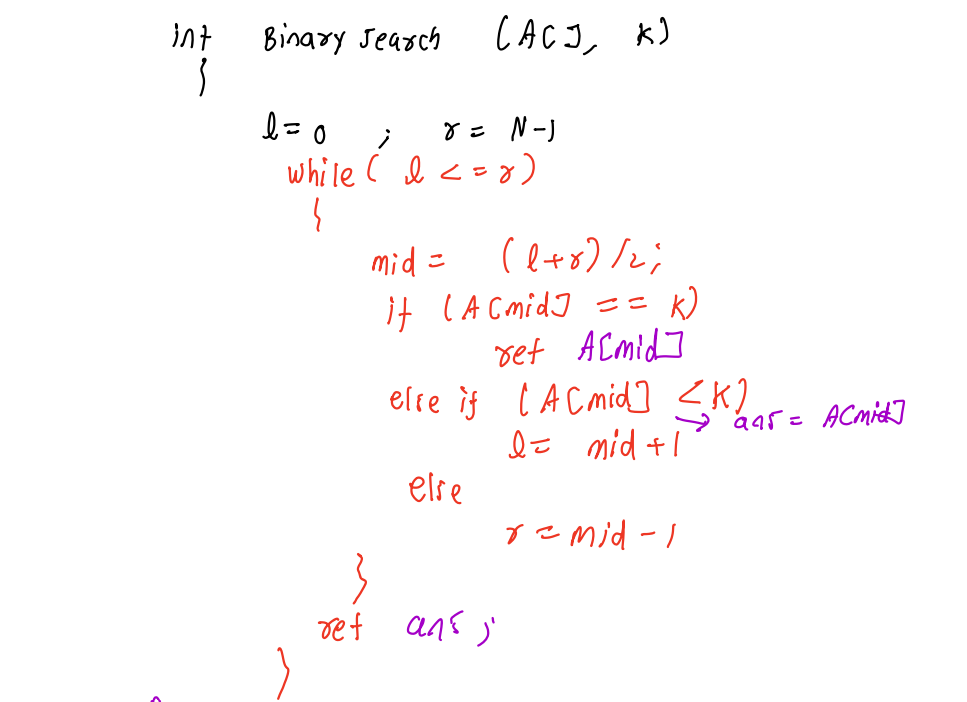 int Binary search (A[], K)
{
l = 0 ; r = N-1
while ( l <= r)
{
mid = (l+r) /2;
if (A[mid] == K)
ret A[mid]
else if (A[mid] < K)
→ ans = A[mid]
l = mid +1
else
r = mid - 1
}
ret ans ;
}